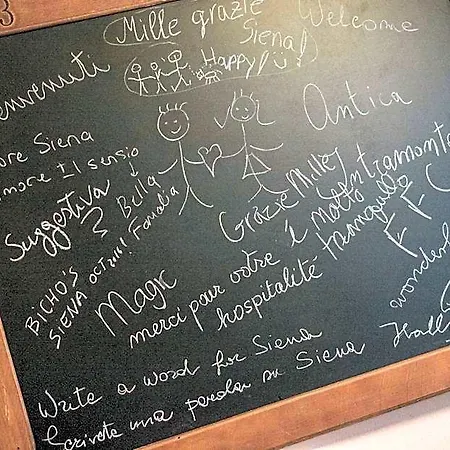 Mille grazie
Siena!
Happy!
Welcome
envenuti
ore Siena
more Il sensio
Suggestiva
Bella
Famiglia
Antica
Grazie Mille
Contramonte
è molto
tranquillo
BICHO'S
SIENA OCT 2011
Magic
merci pour votre
hospitalité
wonderf
Write a word for Siena
Scrivete una parola su Siena